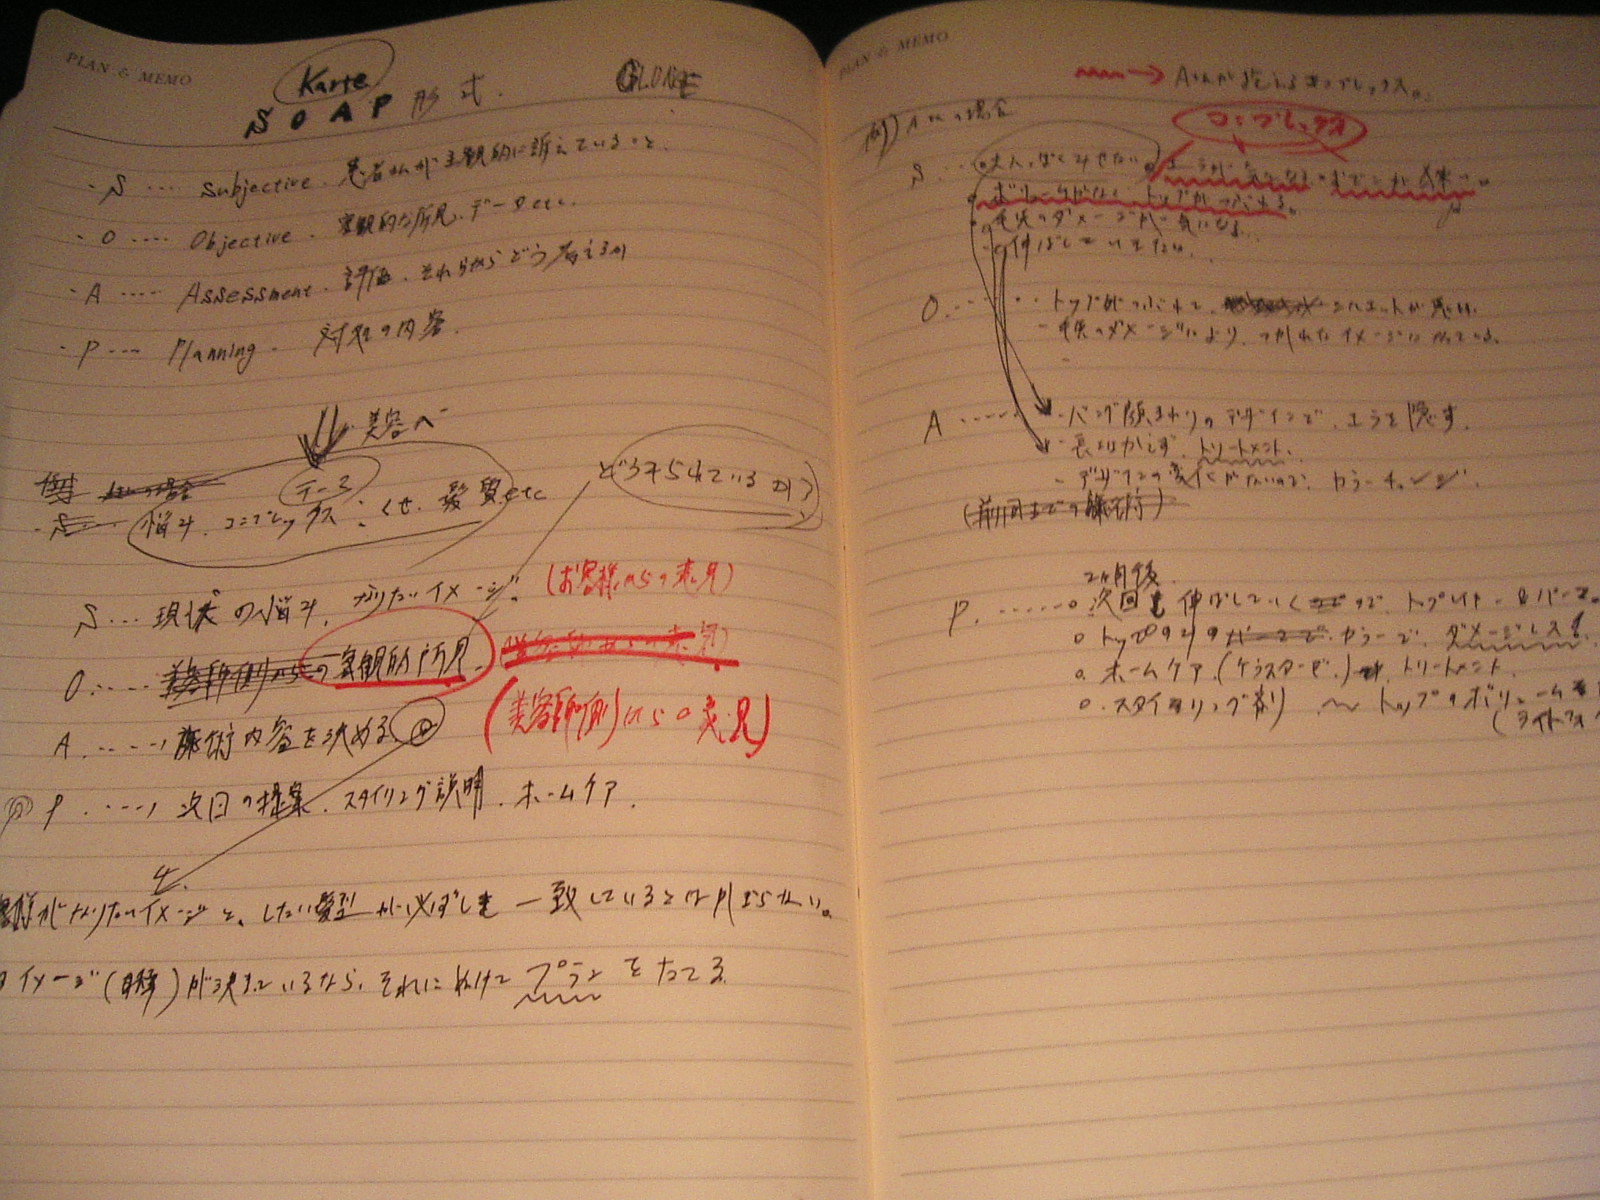 PLAN & MEMO
Karte
SOAP 形式.
GLONE
・S ・・・ Subjective. 患者さんが主観的に訴えていること.
・O ・・・・ Objective. 客観的な所見、データetc.
・A ・・・・ Assessment. 評価. それらからどう考えるか
・P ・・・ Planning. 対処の内容.
美容へ
どう考えているか?
データ
悩み. コンプレックス くせ. 髪質etc
S ・・・ 現状の悩み. なりたいイメージ. (お客様からの意見)
O ・・・・ 美容師側からの客観的所見.
(美容師側からの意見)
A ・・・・・ 施術内容を決める.
P ・・・・, 次回の提案. スタイリング説明. ホームケア.
がなりたいイメージと、したい髪型が必ずしも一致しているとはかぎらない。
イメージ(目標)が決まっているなら、それにむけてプランをたてる
PLAN & MEMO
→ Aさんが抱えるコンプレックス。
例) Aさんの場合
コンプレックス
S ・・・ 大人っぽくみせたい エラが気になる
ボリュームがなく トップがつぶれる。
毛先のダメージが気になる..
伸ばしていきたい..
O ・・・・・ トップがつぶれて、 シルエットが悪い.
- 毛先のダメージにより、つかれたイメージになっている.
A ・・・・・ - バング顔まわりのデザインで、エラを隠す.
- 長さはかえず、トリートメント.
- デザインの変化がないので、カラーチェンジ.
(前回までの施術)
2ヶ月後.
P. ・・・・・・o 次回も伸ばしていくので、トップレイヤー
o トップの カラーで、ダメージレス!
o. ホームケア.(ケラスターゼ.) トリートメント.
o. スタイリング剤 〜 トップのボリューム